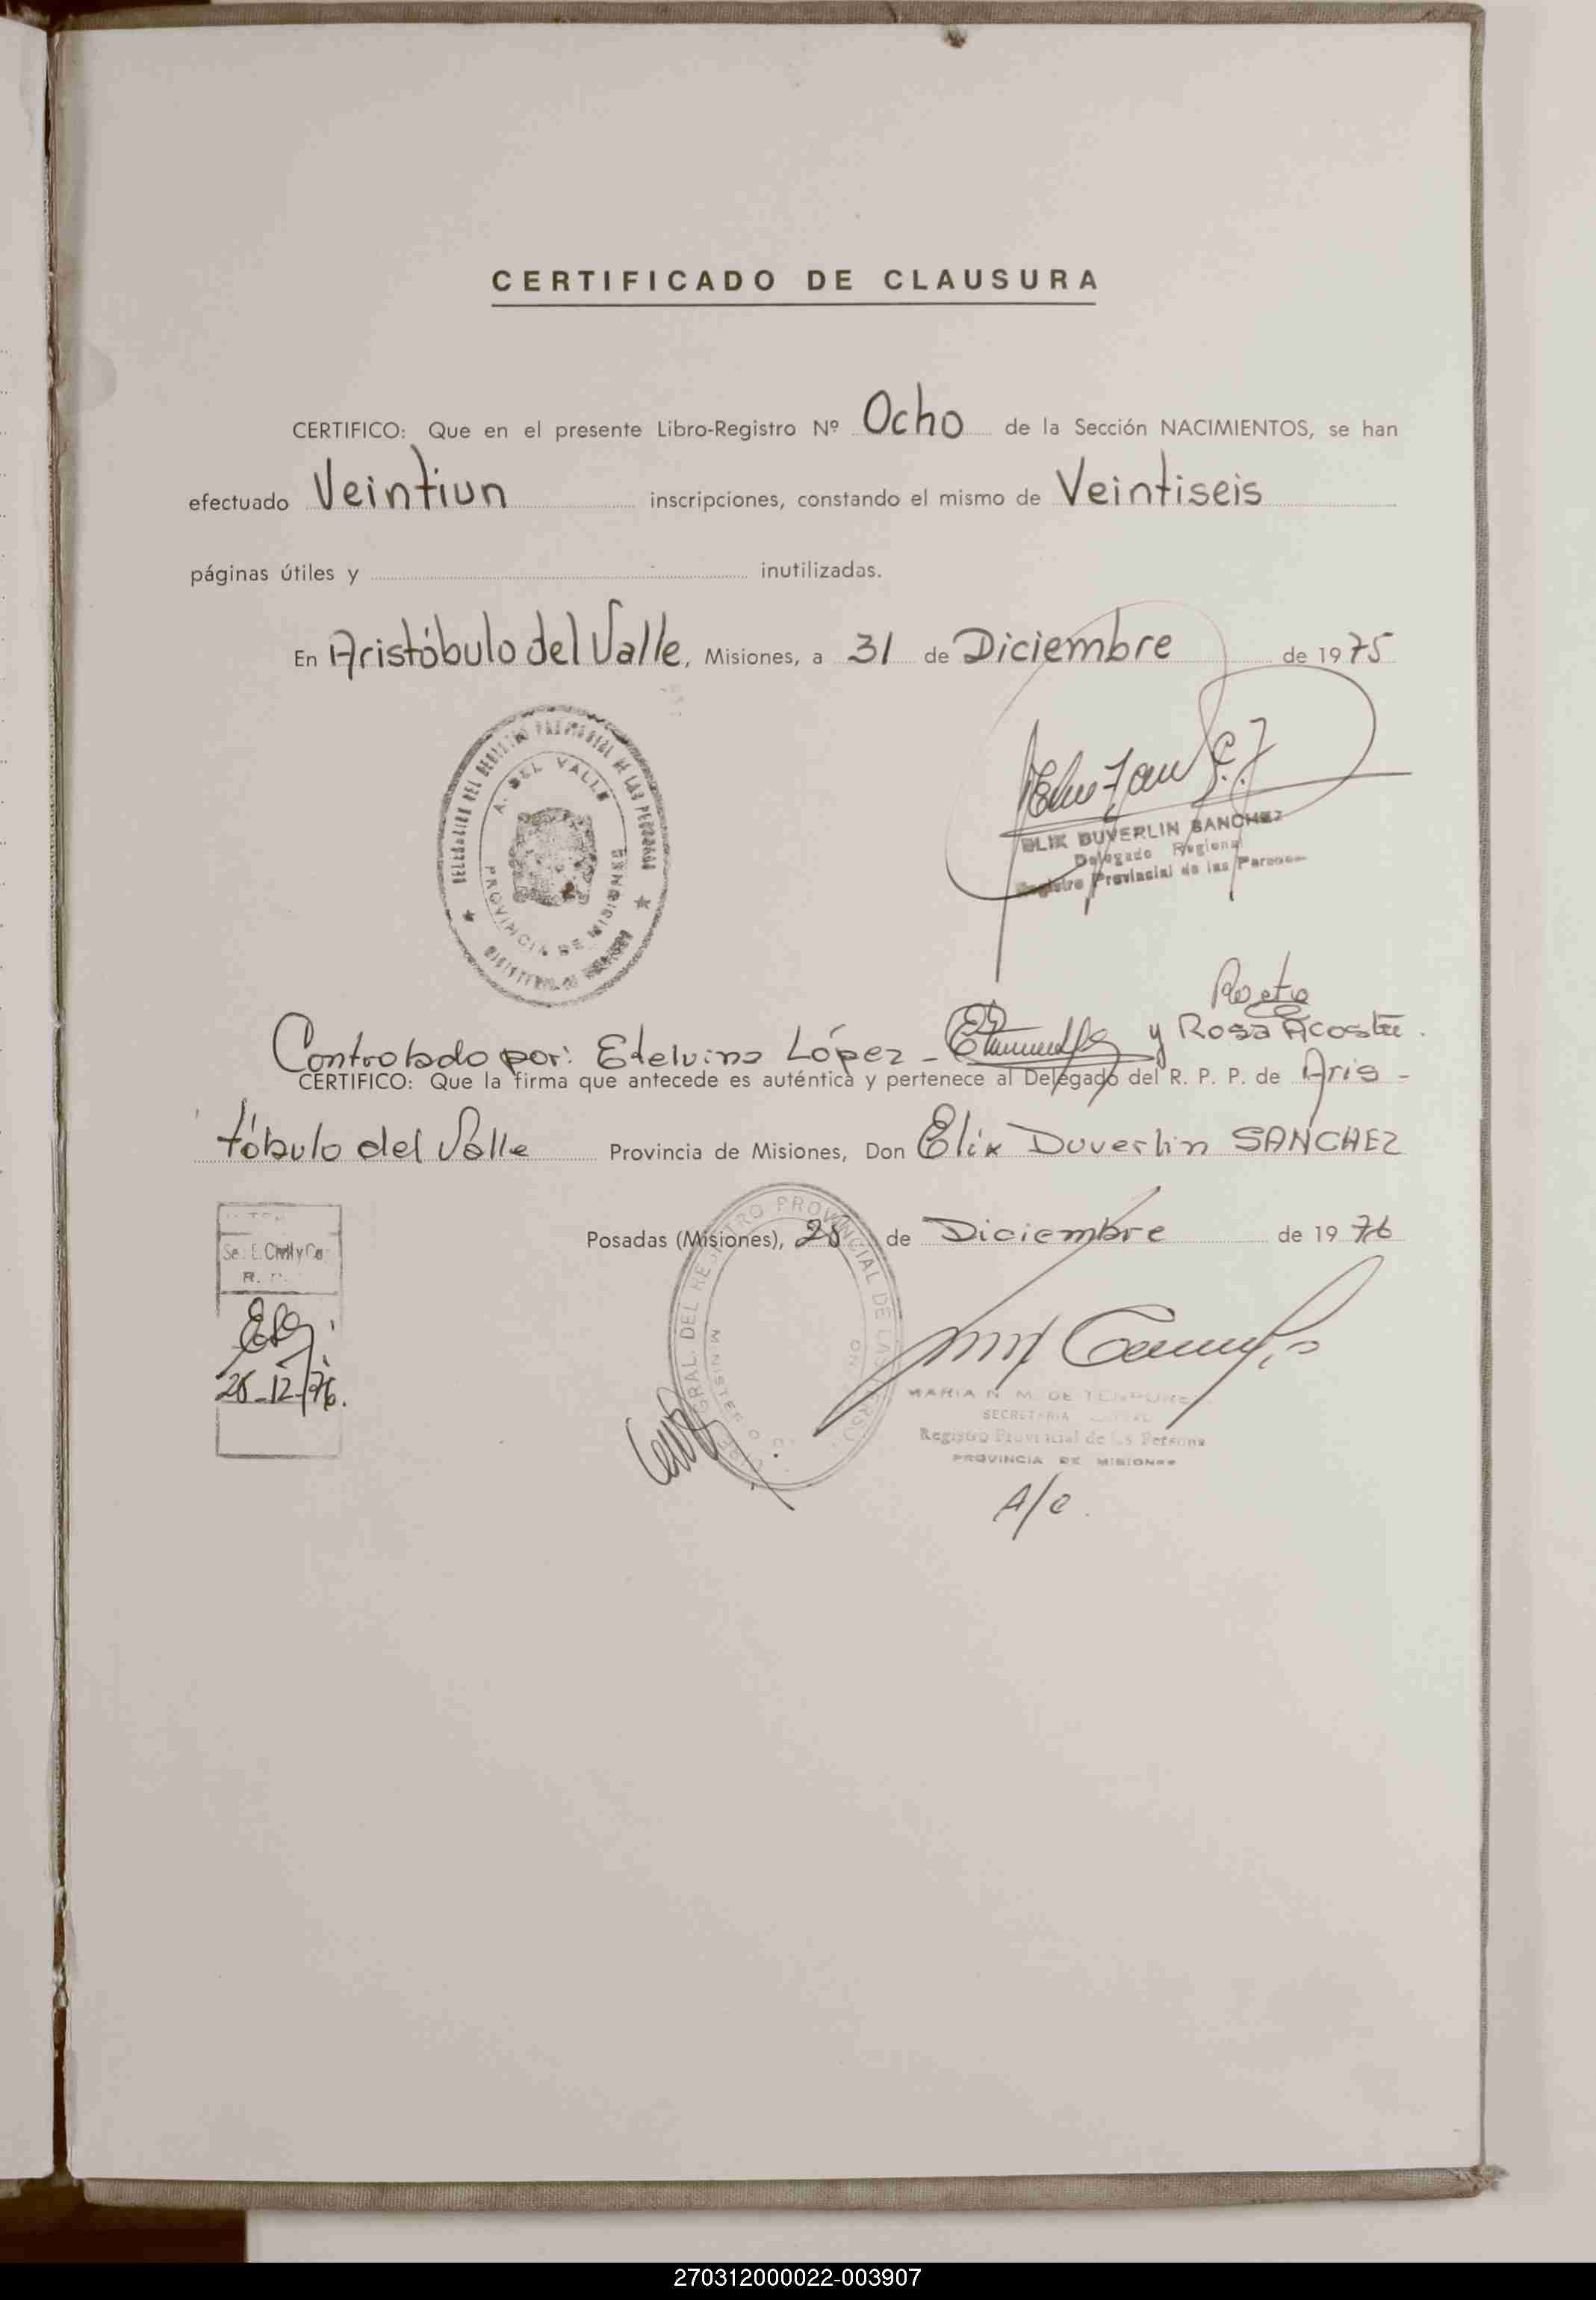 CERTIFICADO DE CLAUSURA
CERTIFICO: Que en el presente Libro-Registro Nº Ocho de la Sección NACIMIENTOS, se han
efectuado Veintiun inscripciones, constando el mismo de Veintiseis
páginas útiles y inutilizadas.
En Aristóbulo del Valle, Misiones, a 31 de Diciembre de 1975
A. DEL VALLE
PROVINCIA DE MISIONES
ELIX DUVERLIN SANCHEZ
Delegado Regional
Registro Provincial de las Personas
Controlado por: Edelvina López - y Rosa Acosta.
CERTIFICO: Que la firma que antecede es auténtica y pertenece al Delegado del R. P. P. de Aris-
tóbulo del Valle Provincia de Misiones, Don Elix Duverlin SANCHEZ
Posadas (Misiones), 28 de Diciembre de 1976
GRAL. DEL REGISTRO PROVINCIAL DE LAS
-12-76.
MARIA N. M. DE
SECRETARIA
Registro Provincial de las Personas
PROVINCIA DE MISIONES
A/C.
270312000022-003907